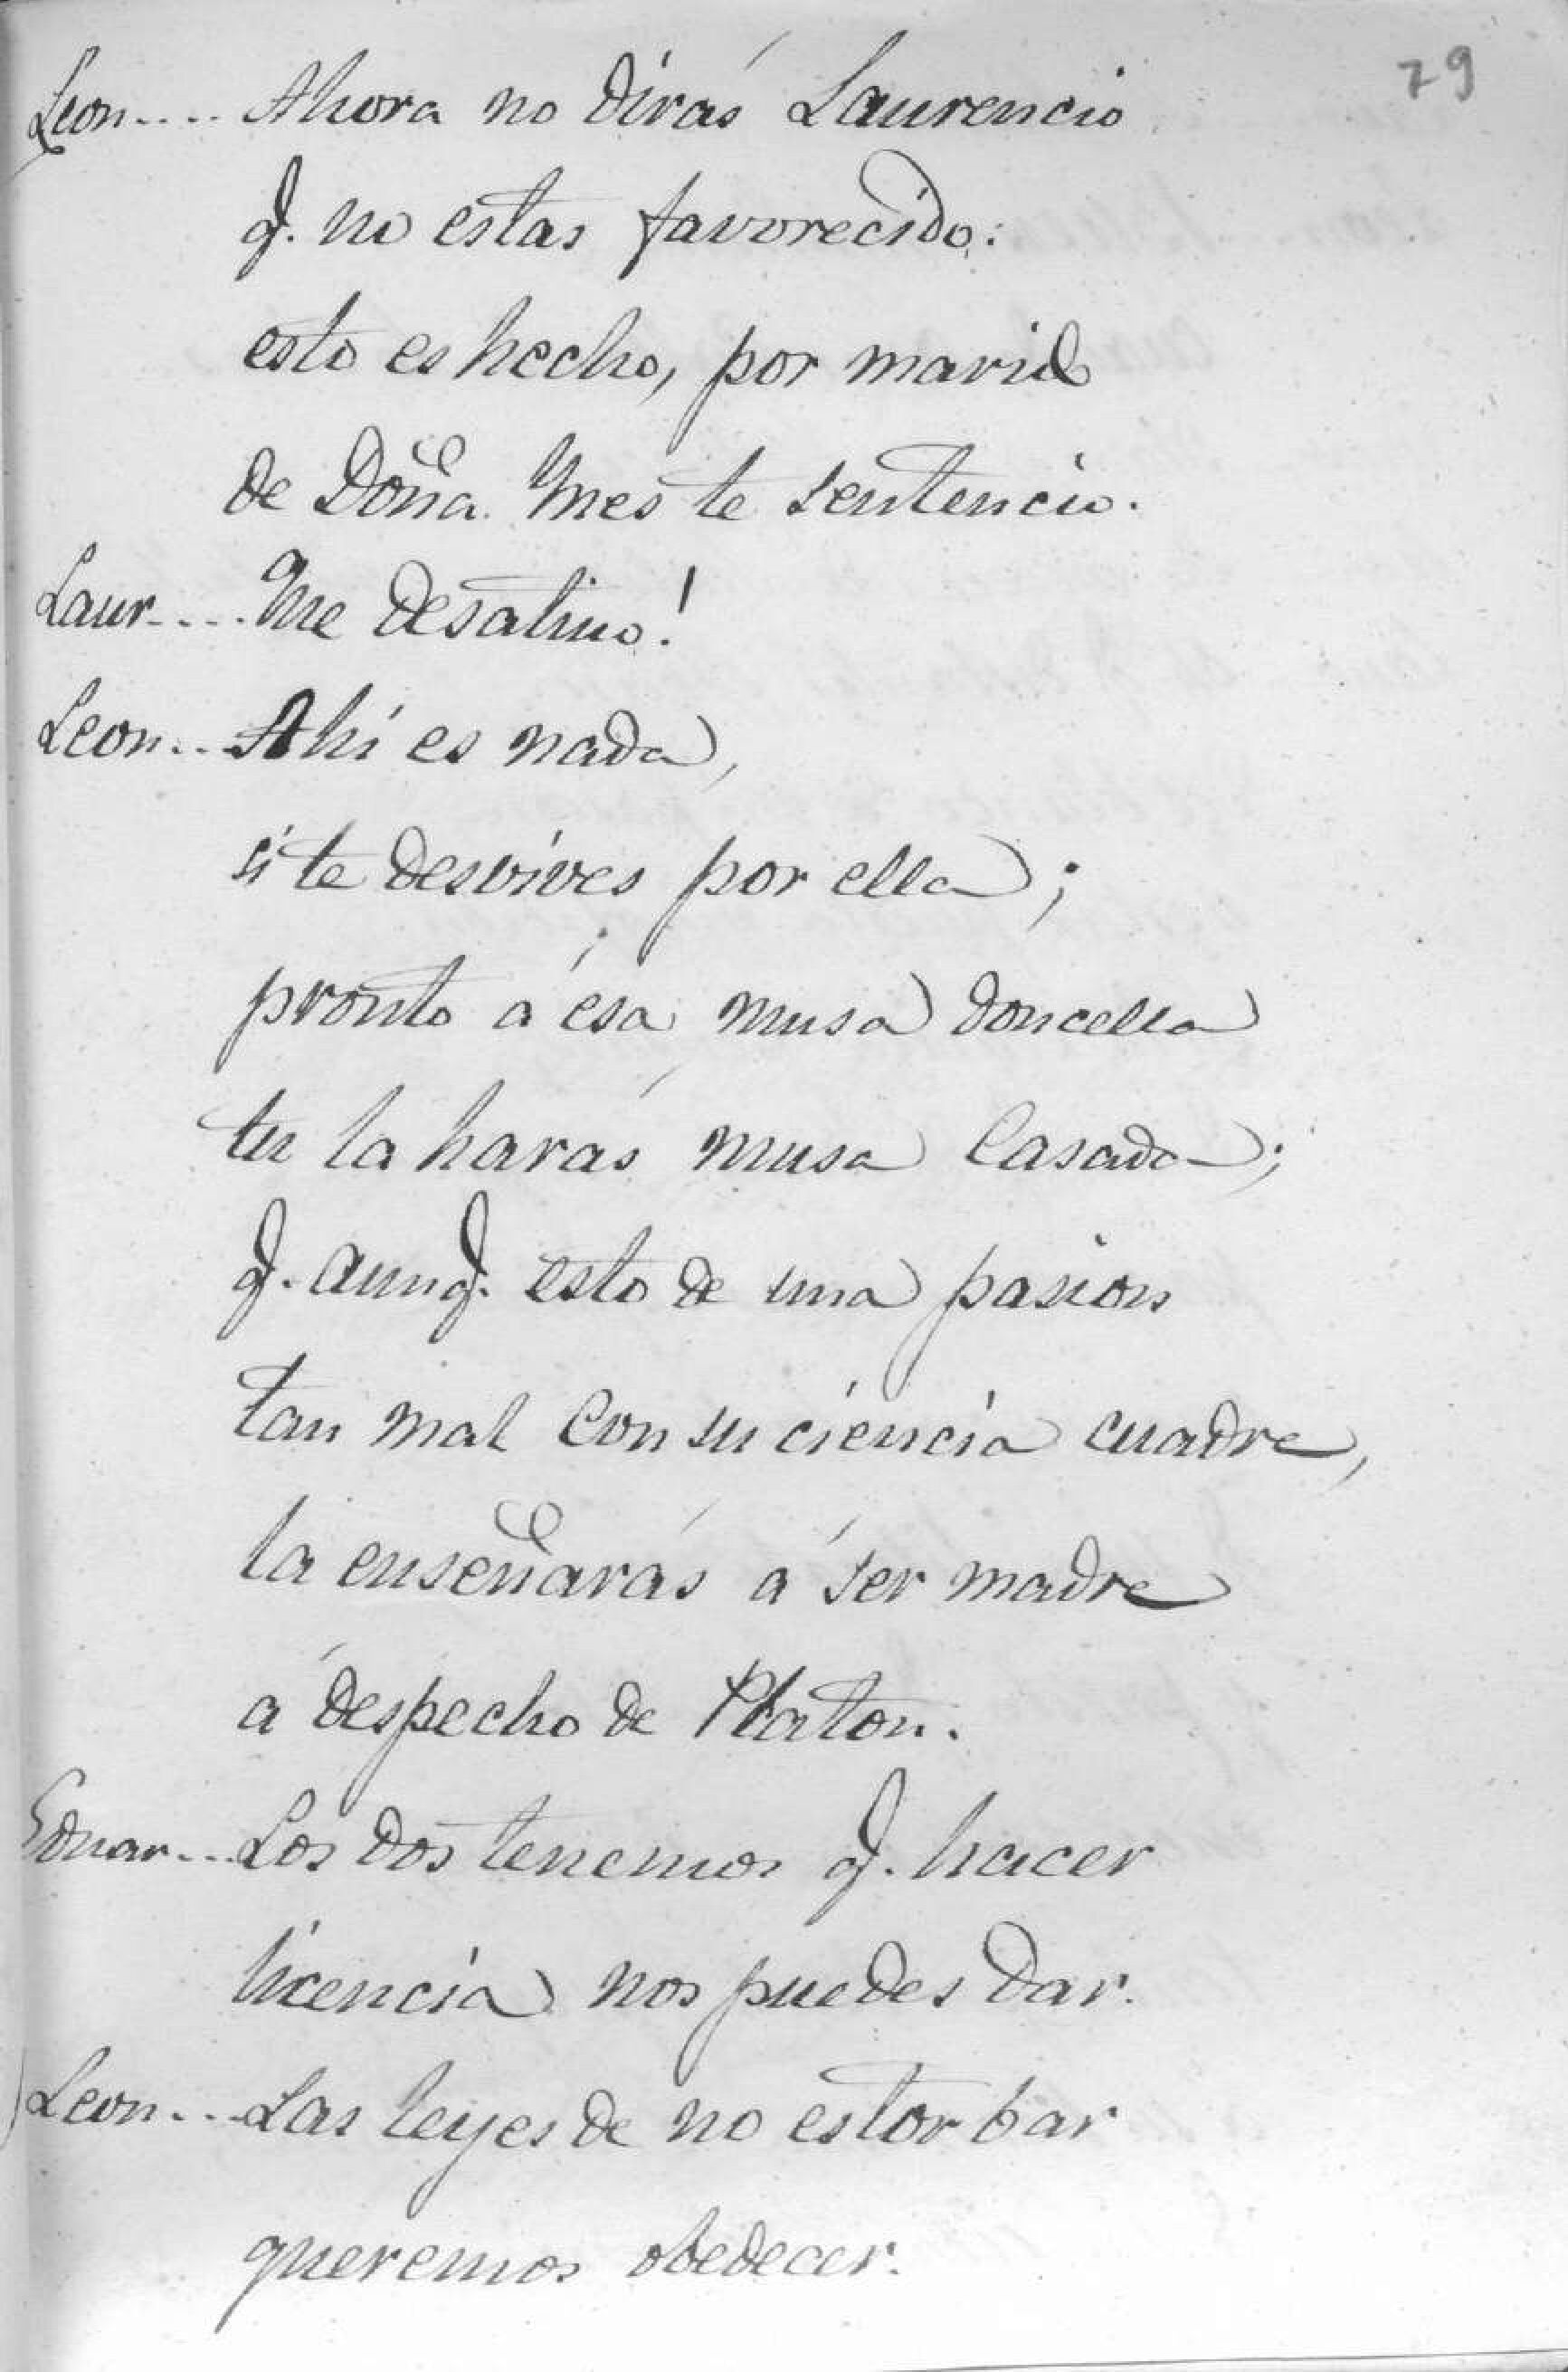 79
Leon.... Ahora no dirás Laurencio
q. no estas favorecido:
esto es hecho, por marido
de Doña Ines te sentencio.
Laur.... Me desatino!
Leon... Ahí es nada,
si te desvives por ella;
pronto á ésa musa doncella
tu la harás musa Casada;
q. aunq. esto de una pasion
tan mal con su ciencia cuadre,
la enseñarás á ser madre
á despecho de Platon.
Eduar... Los dos tenemos q. hacer
licencia nos puedes dar.
Leon... Las leyes de no estorbar
queremos obedecer.